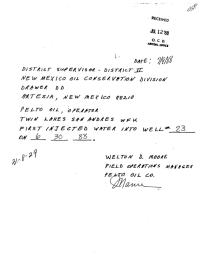 RECEIVED
JUL 12 '88
O. C. D.
ARTESIA, OFFICE
DATE:
DISTRICT SUPERVISOR - DISTRICT II
NEW MEXICO OIL CONSERVATION DIVISION
DRAWER DD
ARTESIA, NEW MEXICO 88210
PELTO OIL, OPERATOR
TWIN LAKES SAN ANDRES
FIRST INJECTED WATER INTO WELL # 23
ON 6 30 88.
WELTON D. MOORE
FIELD OPERATIONS MANAGER
PELTO OIL CO.